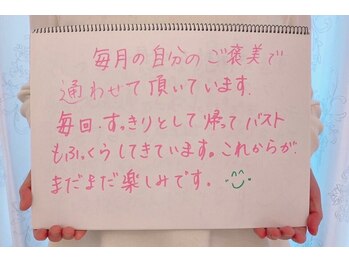 毎月の自分のご褒美で
通わせて頂いています.
毎回.すっきりとして帰ってバスト
もふっくらしてきています。これからが
まだまだ楽しみです。